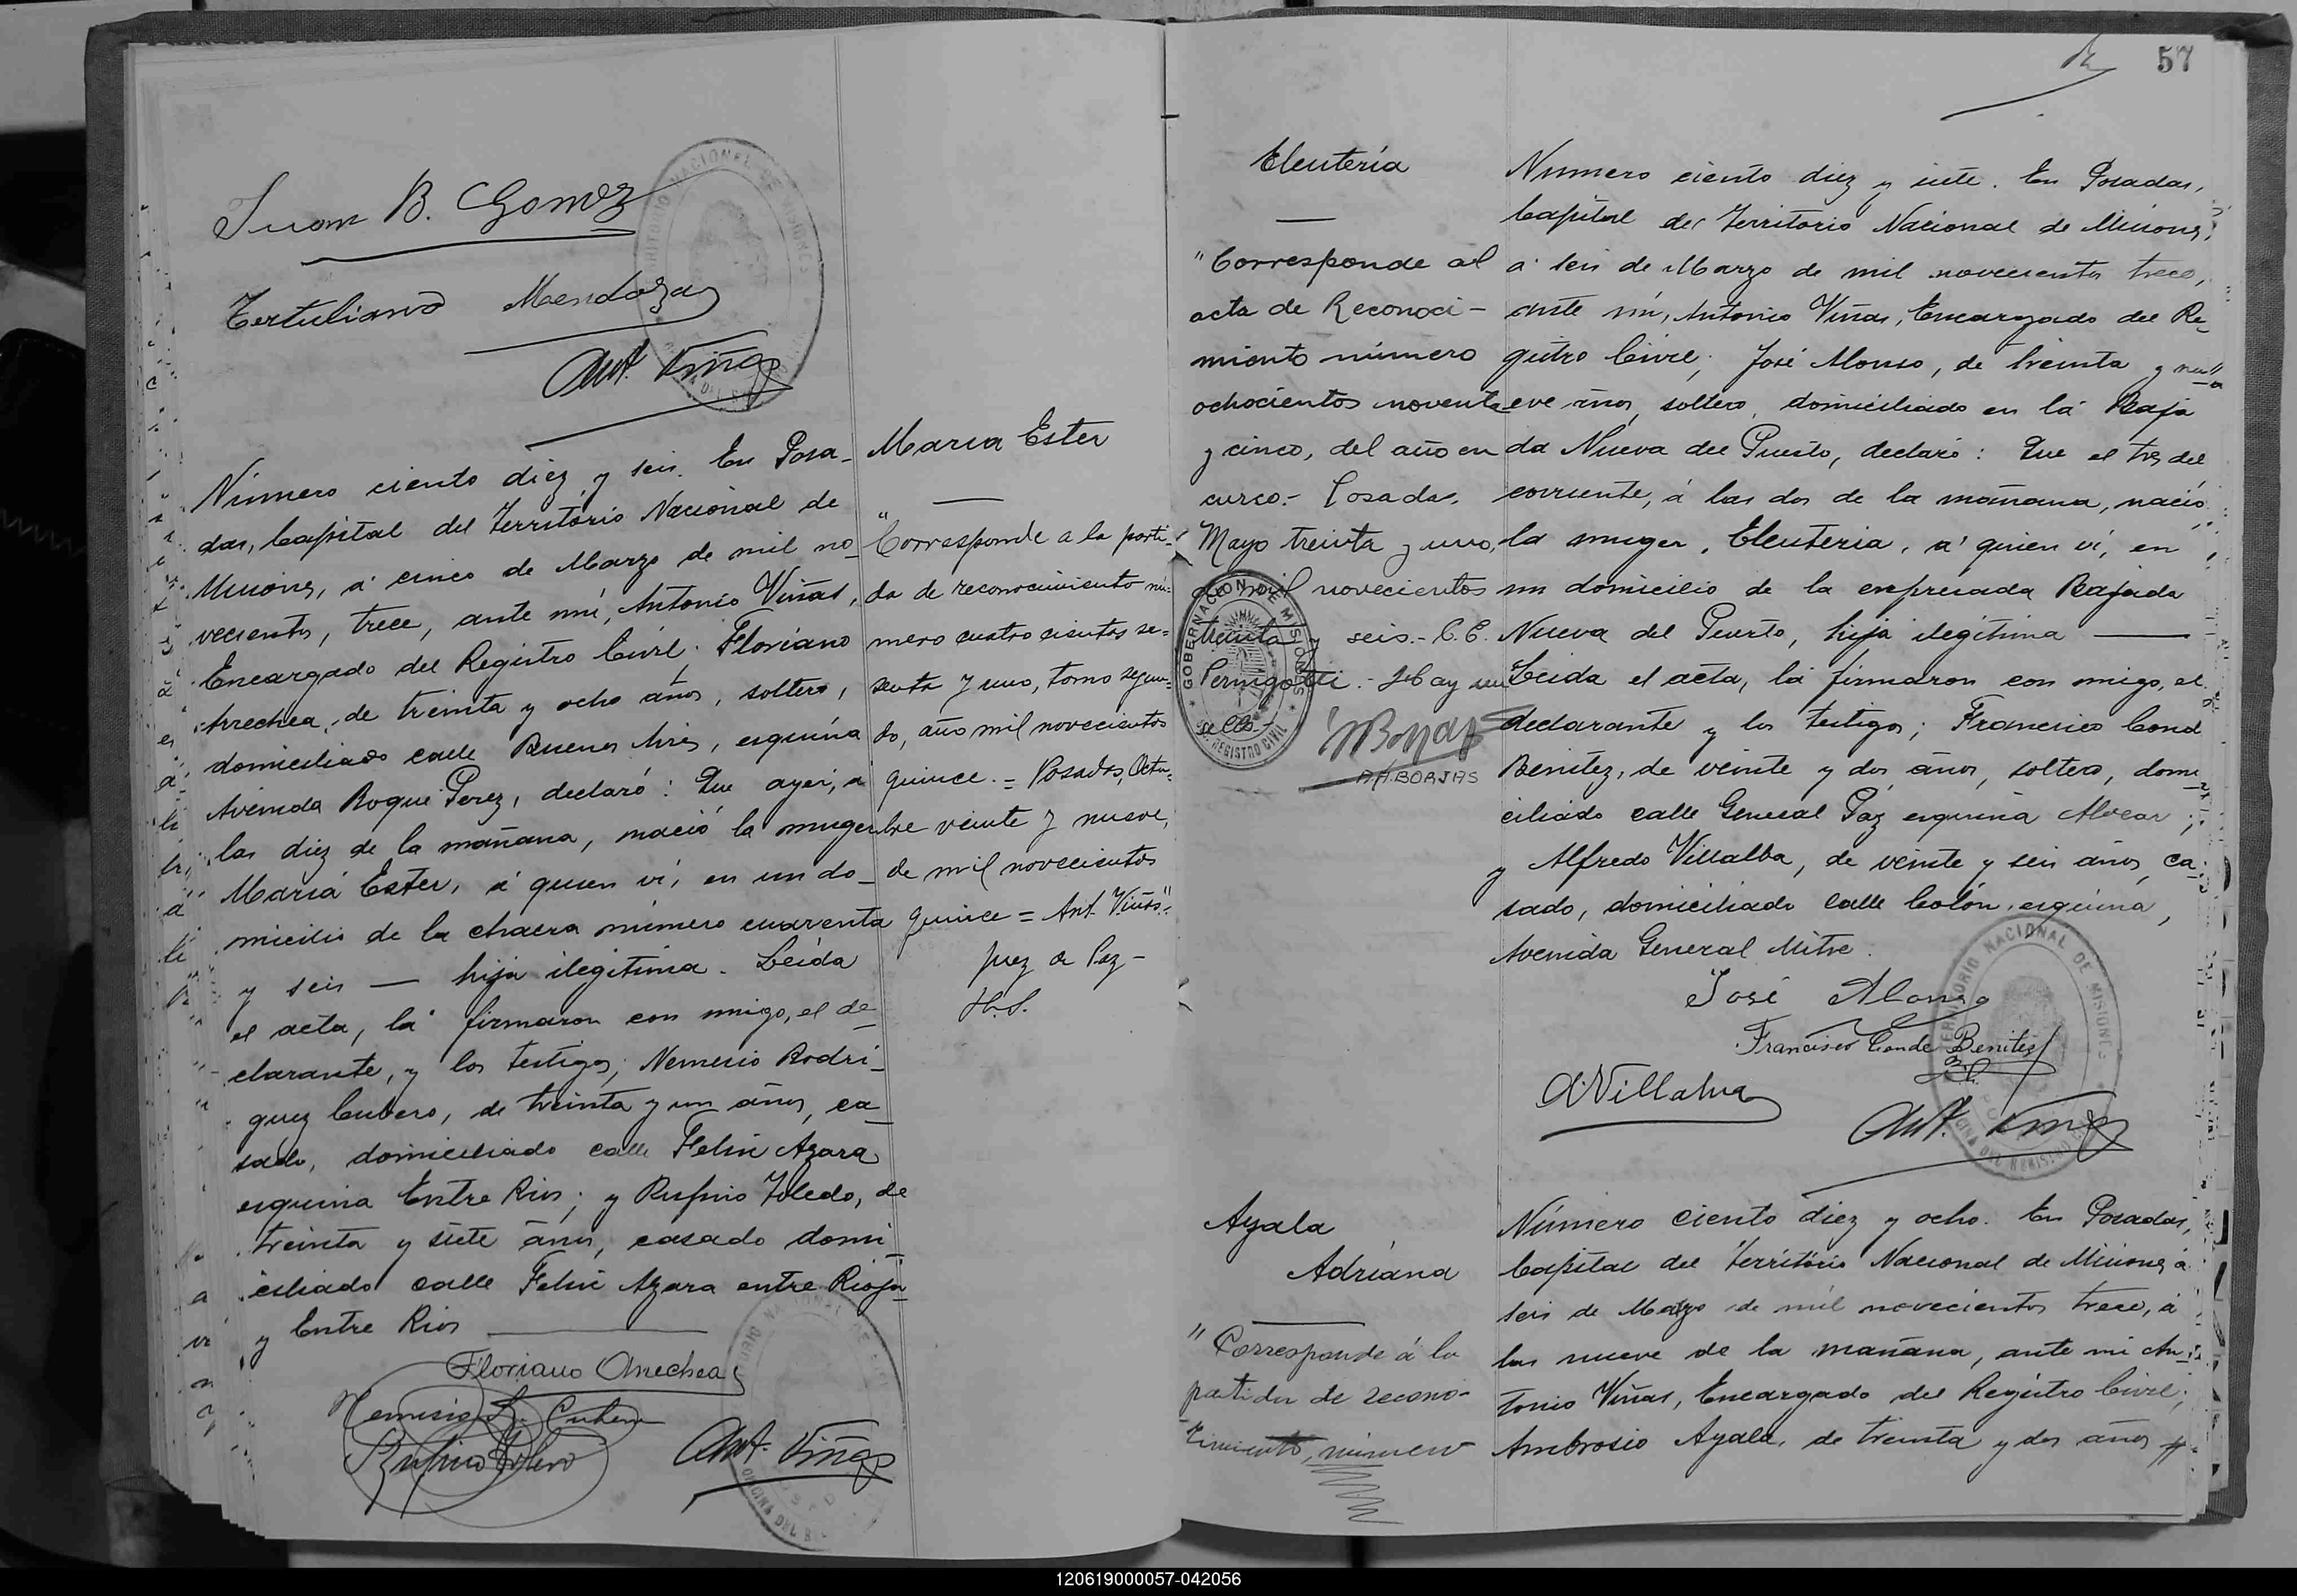 Juan B. Gomez
Tertuliano Mendoza
Ant. Viñas
Número ciento diez y seis. En Posa-
das, Capital del Territorio Nacional de
Misiones, á cinco de Marzo de mil no-
vecientos, trece, ante mí, Antonio Viñas,
Encargado del Registro Civil. Floriano
Arrechea, de treinta y ocho años, soltero,
domiciliado calle Buenos Aires, esquina
Avenida Roque Perez, declaró: Que ayer, a
las diez de la mañana, nació la muger
María Ester, á quien ví, en un do-
micilio de la chacra número cuarenta
y seis — hija ilegitima. Leída
el acta, la firmaron con migo, el de-
clarante, y los testigos, Nemesio Rodri-
guez Cubero, de treinta y un años, ca-
sado, domiciliado calle Felix Azara
esquina Entre Rios; y Rufino Toledo, de
treinta y siete años, casado domi-
ciliado calle Felix Azara entre Rioja
y Entre Rios
Floriano Arrechea
Nemesio R. Cubero
Rufino Toledo
Ant. Viñas
Maria Ester
"Corresponde a la parti-
da de reconocimiento nú-
mero cuatro cientos se-
senta y uno, tomo segun-
do, año mil novecientos
quince. = Posadas, Octu-
bre veinte y nueve,
de mil novecientos
quince = Ant. Viñas"
juez de Paz-
H.S.
57
Eleutería
"Corresponde al
acta de Reconoci-
miento número
ochocientos noventa
y cinco, del año en
curso.- Posadas,
Mayo treinta y uno,
de mil novecientos
treinta y seis.- C.E.
Pernigotti.- Hay un
sello-
GOBERNACION DE MISIONES
REGISTRO CIVIL
A.H. BORJAS
Numero ciento diez y siete. En Posadas,
Capital del Territorio Nacional de Misiones,
a seis de Marzo de mil novecientos trece,
ante mí, Antonio Viñas, Encargado del Re-
gistro Civil, José Alonso, de treinta y nu-
eve años, soltero, domiciliado en la Baja
da Nueva del Puerto, declaró: Que el tres del
corriente, á las dos de la mañana, nació
la muger, Eleuteria, a quien ví, en
un domicilio de la expresada Bajada
Nueva del Puerto, hija ilegítima —
Leida el acta, la firmaron con migo, el
declarante y los testigos; Francisco Cond
Benitez, de veinte y dos años, soltero, domi-
ciliado calle General Paz esquina Alvear;
y Alfredo Villalba, de veinte y seis años, ca-
sado, domiciliado calle Colón, esquina,
Avenida General Mitre.
José Alonso
Francisco Conde Benitez
A Villalva
Ant. Viñas
TERRITORIO NACIONAL DE MISIONES
Ayala
Adriana
"Corresponde á la
partida de recono-
cimiento, número
Número ciento diez y ocho. En Posadas,
Capital del Territorio Nacional de Misiones, á
seis de Marzo de mil novecientos trece, á
las nueve de la mañana, ante mi An-
tonio Viñas, Encargado del Registro Civil;
Ambrosio Ayala, de treinta y dos años
120619000057-042056